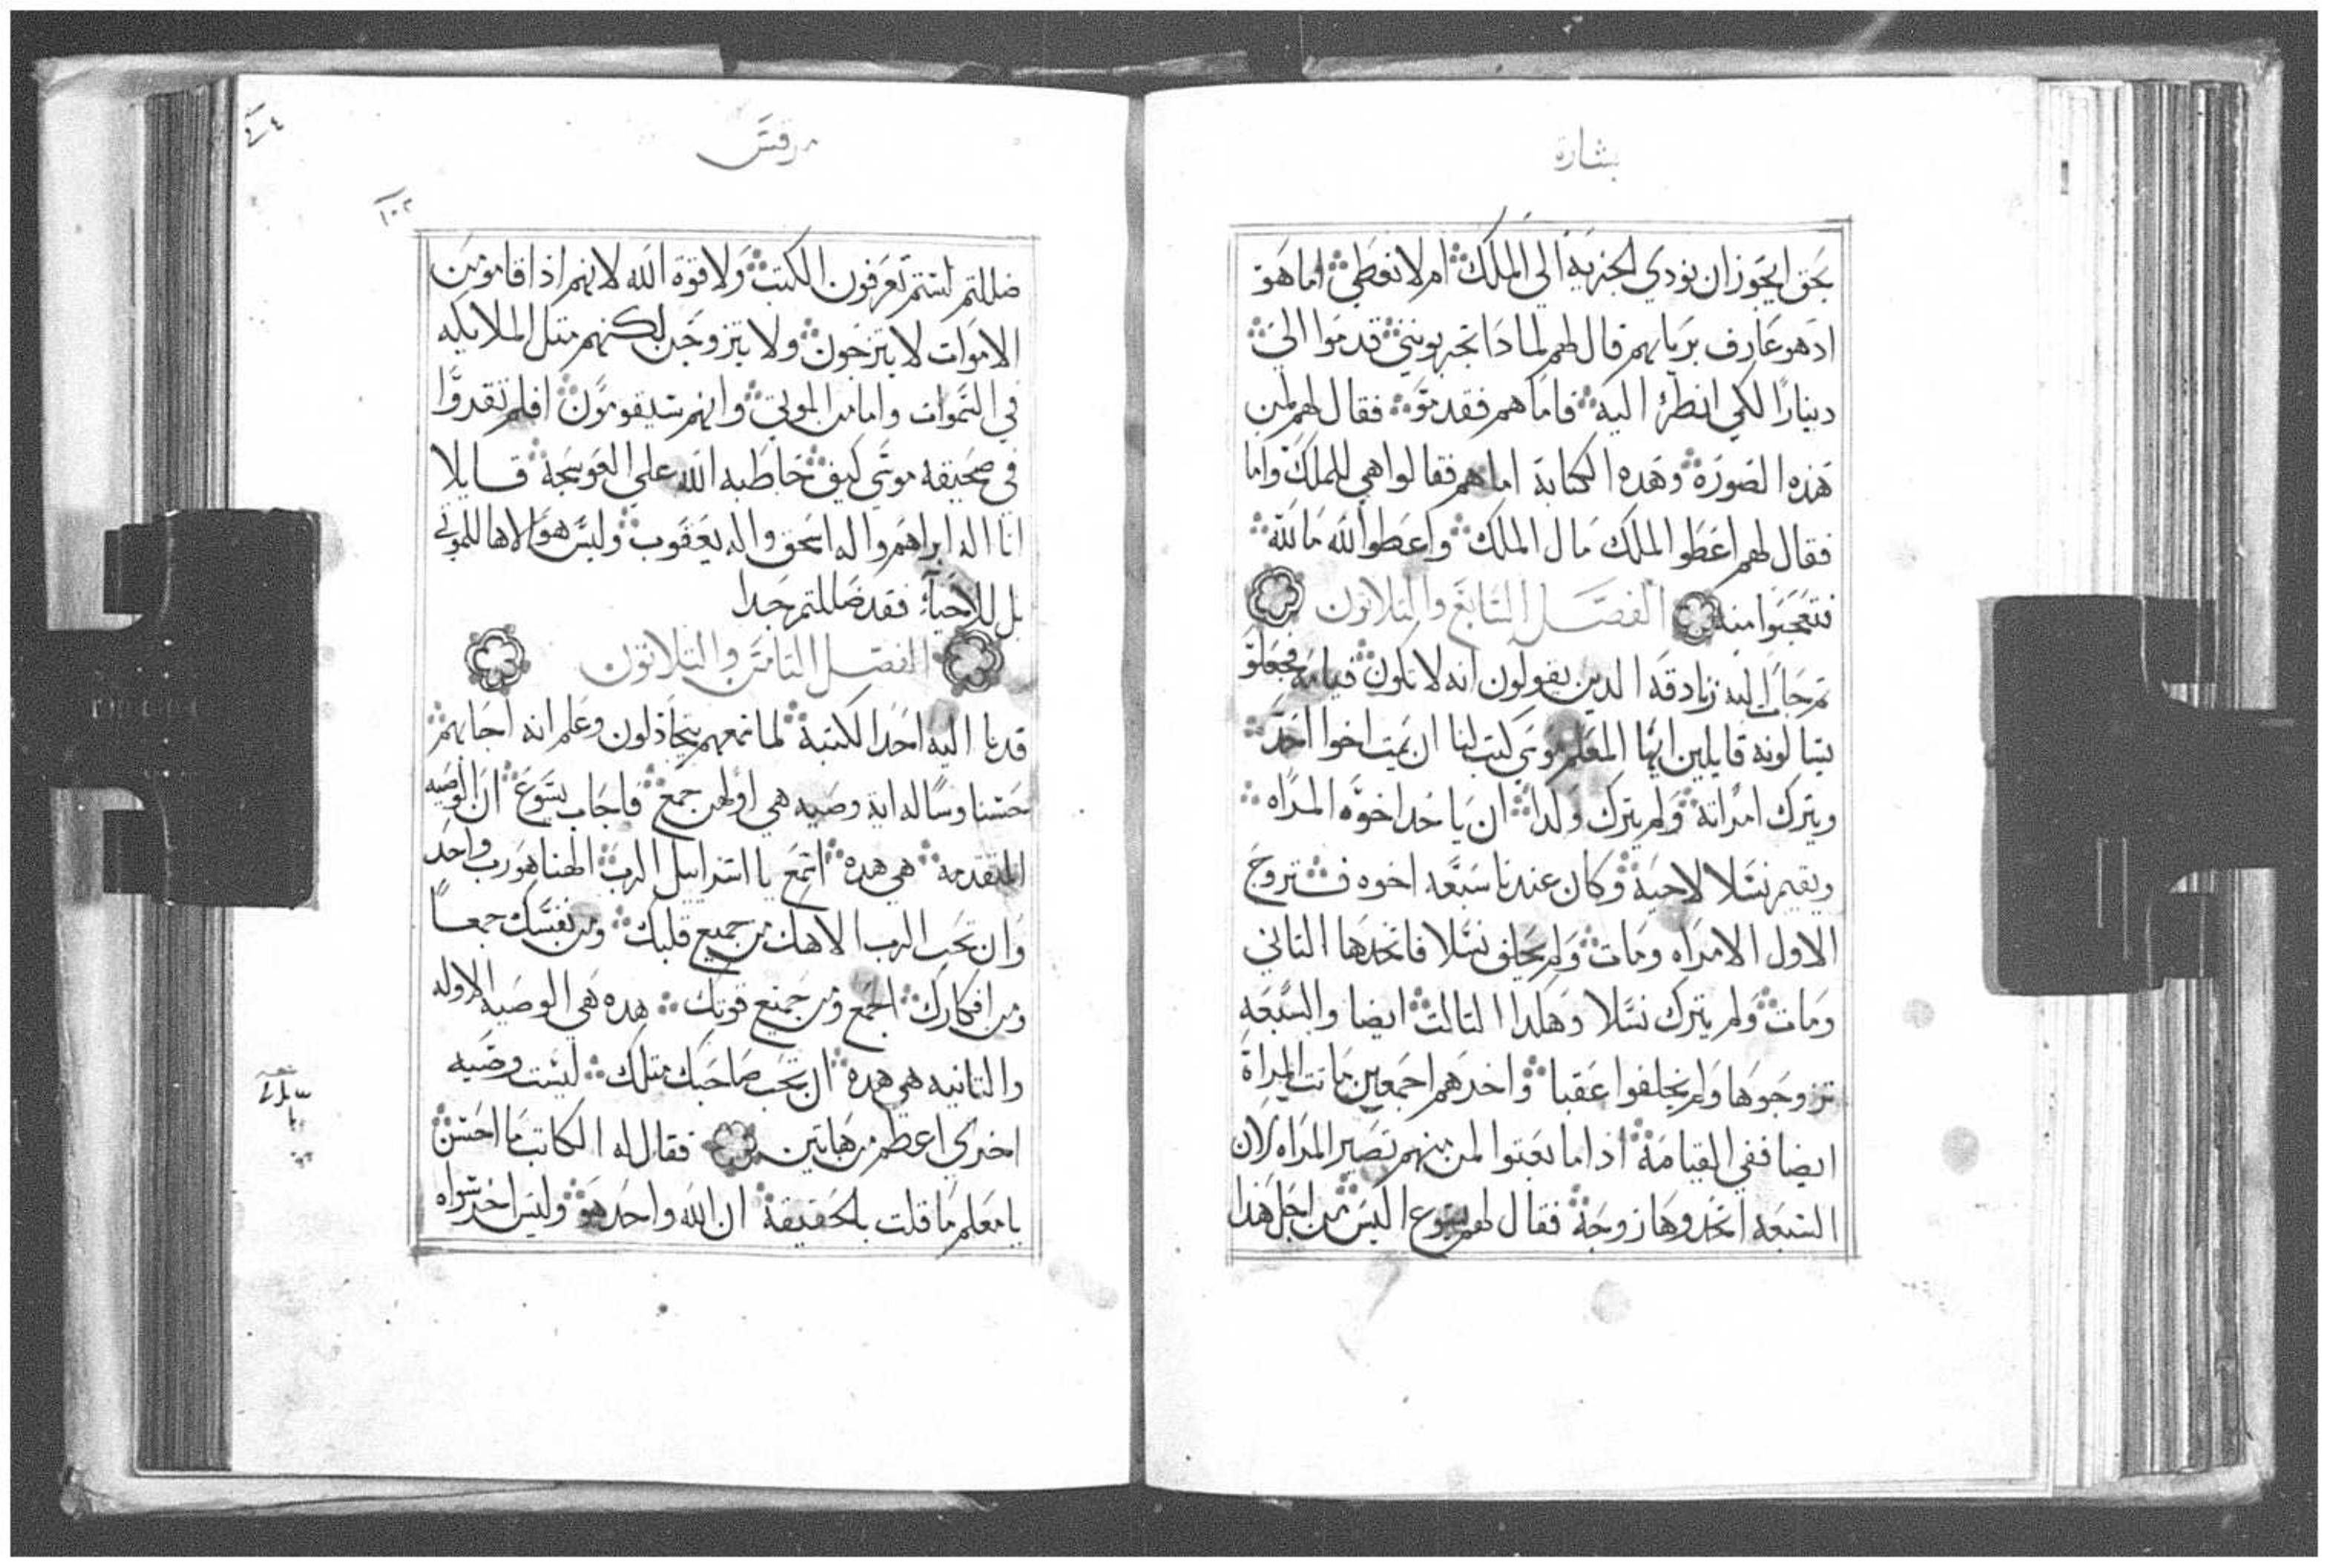 بشارة
بحق ايجوز ان نودي الجزية الي الملك ام لا نعطي اما هو
اد هو عارف بريايهم قال لهم لمادا تجربونني قدموا الي
دينارا لكي انظر اليه فاما هم فقدموا فقال لهم لمن
هذه الصورة وهده الكتابة اما هم فقالوا هي للملك واما
فقال لهم اعطوا الملك مال الملك واعطوا الله ما لله
فتعجبوا منه الفصل السابع والتلاتون
تم جا اليه زنادقه الدين يقولون انه لا تكون قيامه فجعلو
يسالونه قايلين ايها المعلم موسي كتب لنا ان يمت اخوا احد
ويترك امراته ولم يترك ولدا ان ياخد اخوه المراه
ويقيم نسلا لاخيه وكان عندنا سبعه اخوه فتزوج
الاول الامراه ومات ولم يخلف نسلا فاتخدها التاني
ومات ولم يترك نسلا وهكدا التالت ايضا والسبعه
تزوجوها ولم يخلفوا عقبا واخدهم اجمعين ماتت المراة
ايضا ففي القيامة اذا ما بعتوا لمن منهم تصير المراه لان
السبعه اتخدوها زوجة فقال لهم يسوع اليس من اجل هذا
مرقس
١٠٢
ضللتم لستم تعرفون الكتب ولا قوة الله لانهم اذا قاموا من
الاموات لا يتزجون ولا يتزوجن لكنهم متل الملايكه
في السموات واما من الموتي وانهم سيقومون افلم تقدوا
في صحيفه موسي كيف خاطبه الله علي العوسجة قايلا
انا اله ابراهم واله اسحق واله يعقوب وليس هو الاها للموتي
بل للاحياء فقد ضللتم جدا
الفصل التامن والتلاتون
فدنا اليه احد الكتبة لما سمعهم يتجادلون وعلم انه اجابهم
حسنا وساله اية وصيه هي اولهن جمع فاجاب يسوع ان الوصيه
المتقدمه هي هده اسمع يا اسراسل الرب الهنا هو رب واحد
وان تحب الرب الاهك من جميع قلبك ومن نفسك جمعا
ومن افكارك اجمع ومن جميع قوتك هده هي الوصيه الاوله
والتانيه هي هده ان تحب صاحبك متلك ليست وصيه
اخري اعظم من هاتين فقال له الكاتب ما احسن
يا معلم ما قلت بالحقيقة ان الله واحد هو وليس اخر سواه